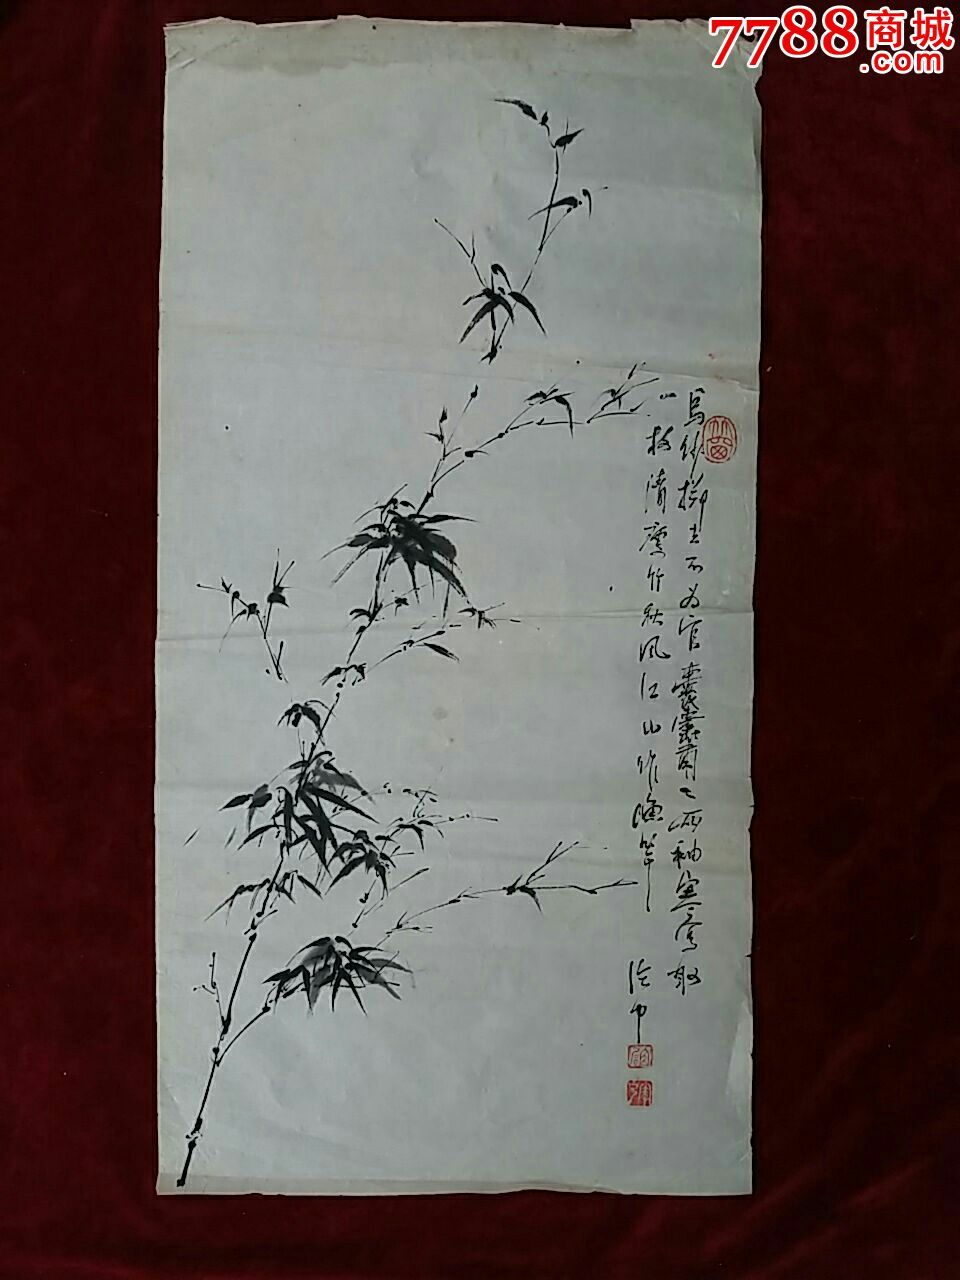 7788商城
.com
乌纱掷去不为官囊橐萧〻两袖寒写取
一枝清瘦竹秋风江上作渔竿